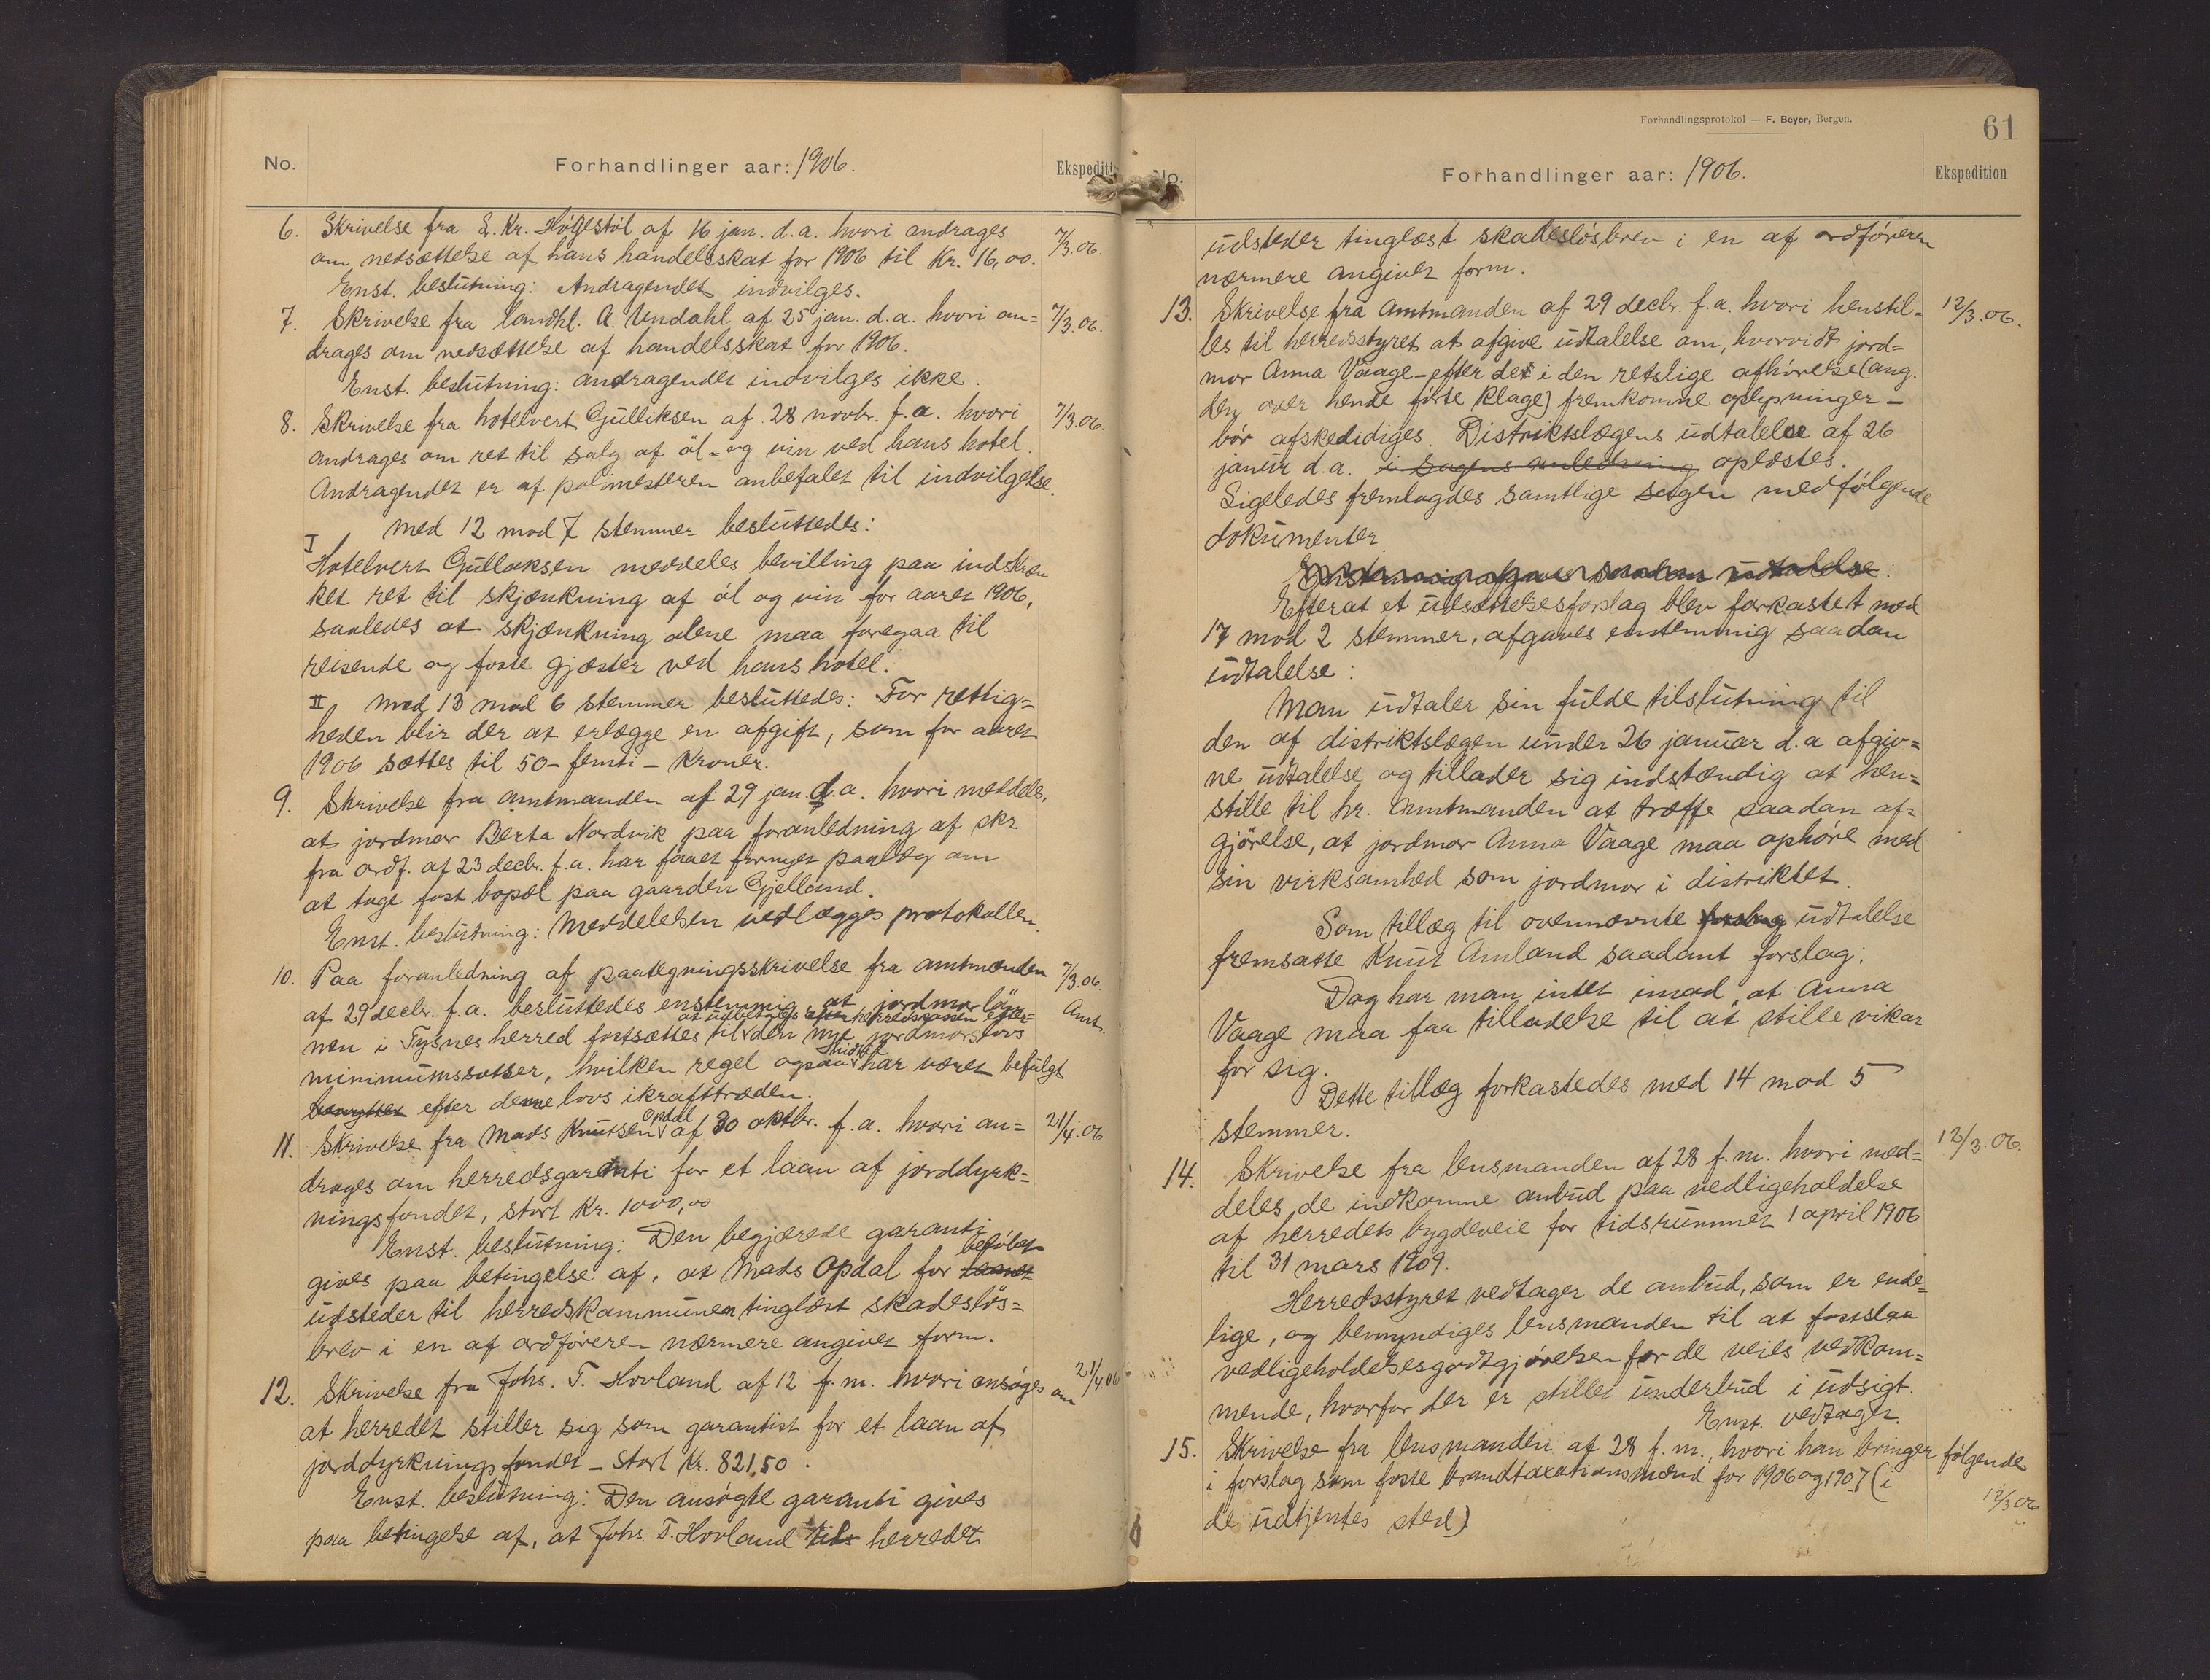 No. Forhandlinger aar: 1906. Ekspediti
6. Skrivelse fra L. Kr. Høgestøl af 16 jan. d.a. hvori andrages 7/3.06.
om nedsættelse af hans handelsskat for 1906 til Kr. 16,00.
Enst. beslutning: Andragendet indvilges.
7. Skrivelse fra landhl. A. Undahl af 25 jan. d.a. hvori an= 7/3.06.
drages om nedsættelse af handelsskat for 1906.
Enst. beslutning: andragendet indvilges ikke.
8. Skrivelse fra hotelvert Gulliksen af 28 novbr. f.a. hvori 7/3.06.
andrages om ret til salg af øl- og vin ved hans hotel.
Andragendet er af politimesteren anbefalet til indvilgelse.
Med 12 mod 7 stemmer besluttedes:
I
Hotelvert Gullaksen meddeles bevilling paa indskræn
ket ret til skjænkning af øl og vin for aaret 1906,
saaledes at skjænkning alene maa foregaa til
reisende og faste gjæster ved hans hotel.
II Med 13 mod 6 stemmer besluttedes: For rettig=
heden blir der at erlægge en afgift, som for aaret
1906 sættes til 50 - femti - Kroner.
9. Skrivelse fra amtmanden af 29 jan. d.a. hvori meddeles,
at jordmor Berta Nordvik paa foranledning af skr.
fra ordf. af 23 decbr. f.a. har faaet fornyet paalæg om
at tage fast bopæl paa gaarden Gjelland.
Enst. beslutning: Meddelelsen vedlægges protokollen.
10. Paa foranledning af paategningsskrivelse fra amtmanden 7/3.06.
af 29 decbr. f.a. besluttedes enstemmig, at jordmorløn Amt.
at udbetales efter herredskassen efter
nen i Tysnes herred fortsættes til den nye jordmorslovs
hidtil
minimumssatser, hvilken regel ogsaa har været befulgt
benyttet efter denne lovs ikrafttræden.
Opdal
11. Skrivelse fra Mads Knutsen af 30 oktbr. f.a. hvori an= 21/4.06
drages om herredsgaranti for et laan af jorddyrk=
ningsfondet, stort Kr. 1000,00
Enst. beslutning: Den begjærede garanti
beløbet
gives paa betingelse af, at Mads Opdal for laanet
udsteder til herredskommunen tinglæst skadesløs=
brev i en af ordføreren nærmere angivet form.
12. Skrivelse fra Johs. T. Hovland af 12 f.m. hvori ansøges om 21/4.06
at herredet stiller sig som garantist for et laan af
jorddyrkningsfondet - stort Kr. 821,50.
Enst. beslutning: Den ansøgte garanti gives
paa betingelse af, at Johs. T. Hovland til herredet
Forhandlingsprotokol — F. Beyer, Bergen.
61
No. Forhandlinger aar: 1906. Ekspedition
udsteder tinglæst skadesløsbrev i en af ordføreren
nærmere angivet form.
13. Skrivelse fra Amtmanden af 29 decbr. f.a. hvori henstil= 12/3.06.
les til herredsstyret at afgive udtalelse om, hvorvidt jord=
mor Anna Vaage - efter det i den retslige afhørelse (ang.
den over hende førte klage) fremkomne oplysninger -
bør afskedidiges. Distriktslægens udtalelse af 26
januar d.a. i sagens anledning oplæstes.
Ligeledes fremlagdes samtlige sagen medfølgende
dokumenter
Enstemmig afgaves saadan udtalelse:
Efterat et udsættelsesforslag blev forkastet med
17 mod 2 stemmer, afgaves enstemmig saadan
udtalelse:
Man udtaler sin fulde tilslutning til
den af distriktslægen under 26 januar d.a afgiv=
ne udtalelse og tillader sig indstændig at hen=
stille til hr. Amtmanden at træffe saadan af=
gjørelse, at jordmor Anna Vaage maa ophøre med
sin virksamhed som jordmor i distriktet.
Som tillæg til ovennævnte forslag udtalelse
fremsatte Knut Amland saadant forslag:
Dog har man intet imod, at Anna
Vaage maa faa tilladelse til at stille vikar
for sig.
Dette tillæg forkastedes med 14 mod 5
stemmer.
14. Skrivelse fra lensmanden af 28 f.m. hvori med= 12/3.06.
deles de indkomne anbud paa vedligeholdelse
af herredets bygdeveie for tidsrummet 1 april 1906
til 31 mars 1909.
Herredsstyret vedtager de anbud, som er ende=
lige, og bemyndiges lensmanden til at fastslaa
vedligeholdelsesgodtgjørelsen for de veies vedkom=
mende, hvorfor der er stillet underbud i udsigt.
Enst. vedtaget.
15. Skrivelse fra lensmanden af 28 f.m., hvori han bringer følgende
i forslag som faste brandtaxationsmænd for 1906 og 1907 (i
de udtjentes sted) 12/3 06